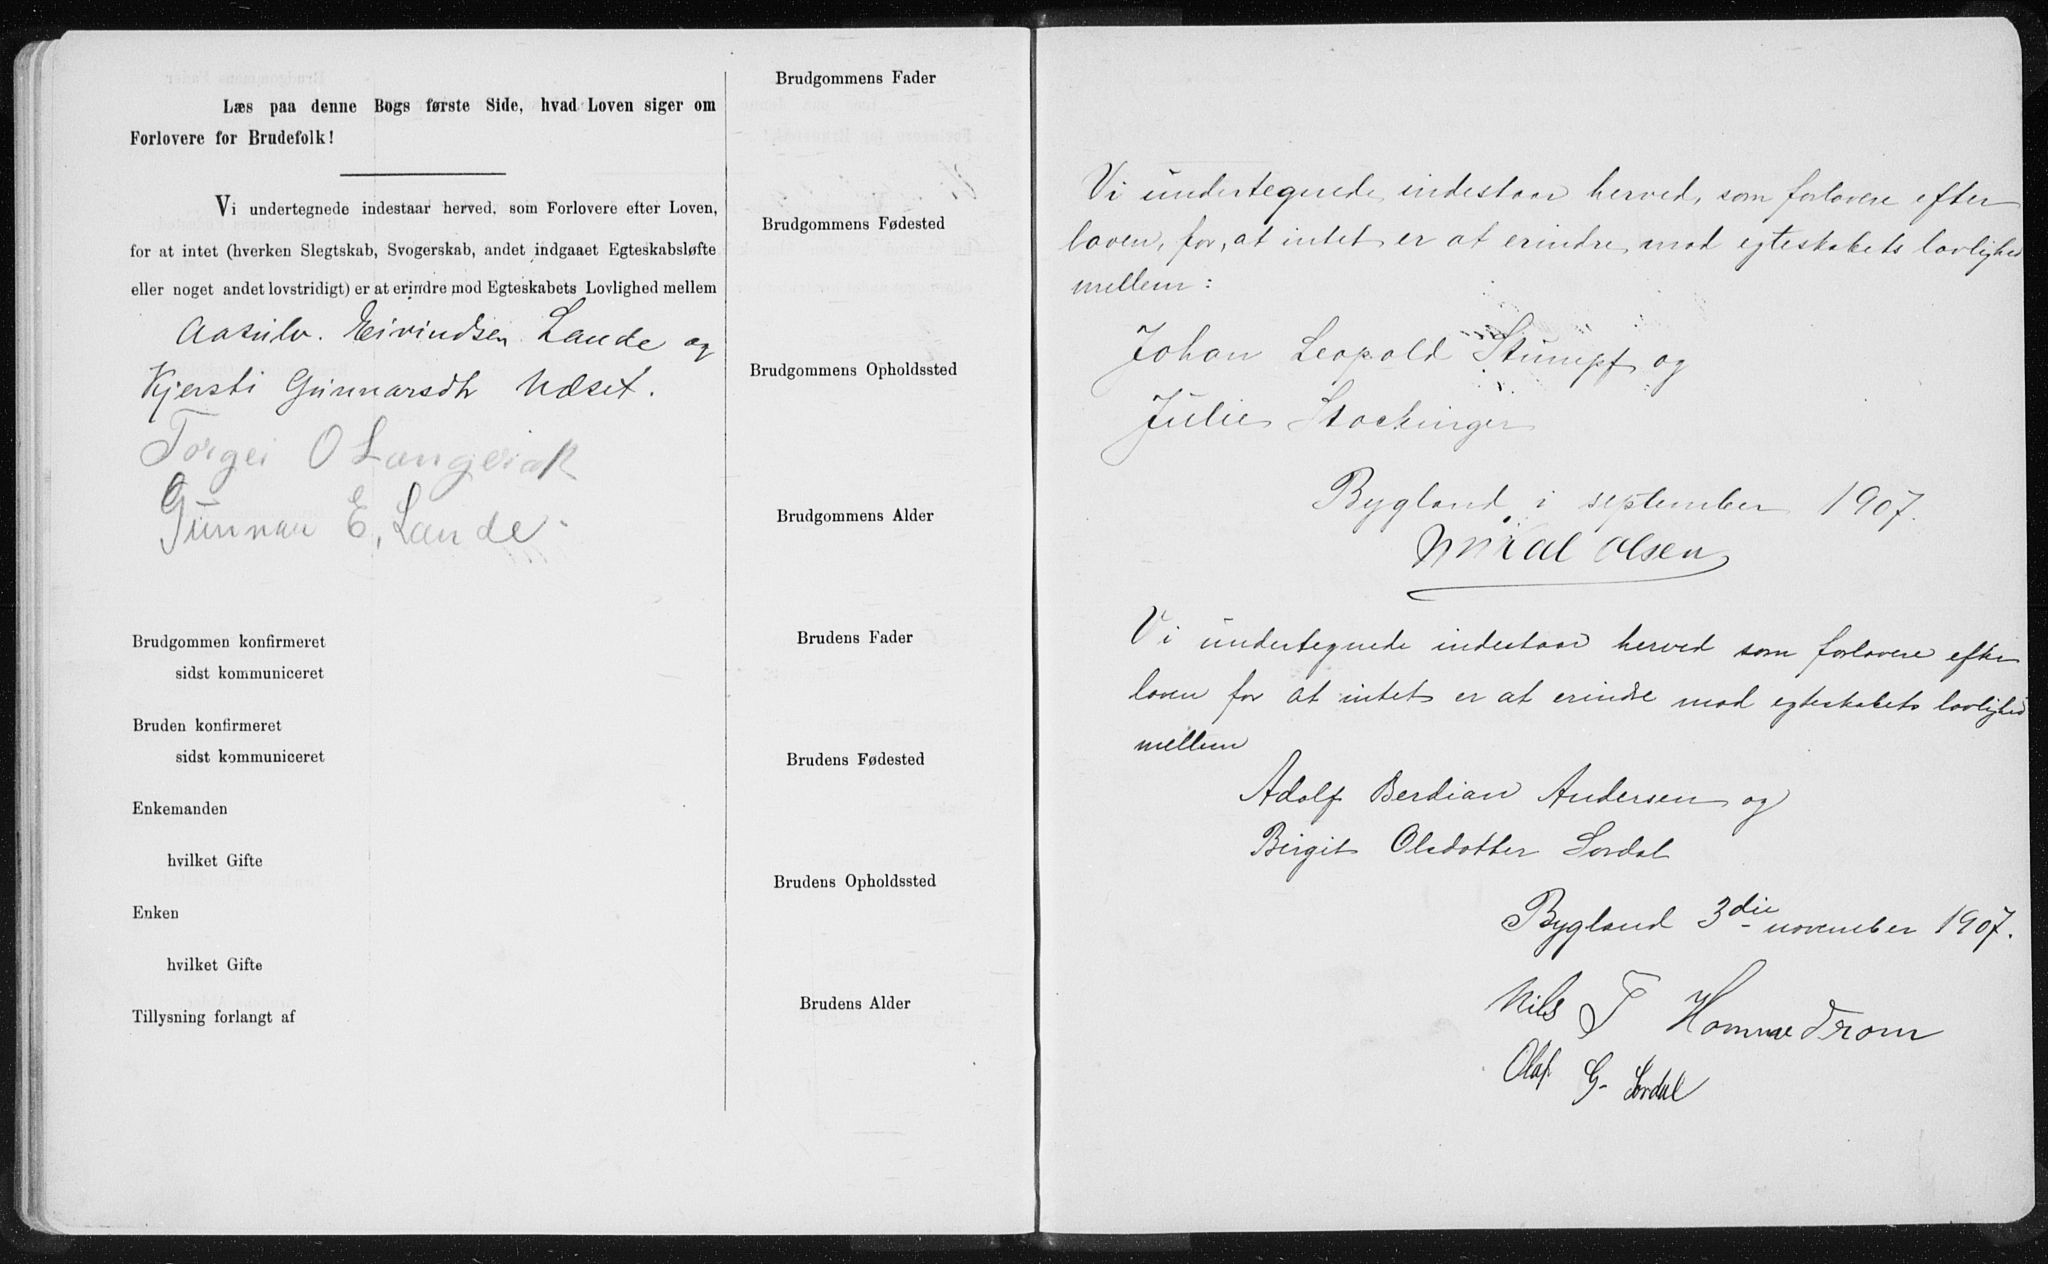 Læs paa denne Bogs første Side, hvad Loven siger om
Forlovere for Brudefolk!
Vi undertegnede indestaar herved, som Forlovere efter Loven,
for at intet (hverken Slegtskab, Svogerskab, andet indgaaet Egteskabsløfte
eller noget andet lovstridigt) er at erindre mod Egteskabets Lovlighed mellem
Aasulv. Eivindsen Lande og
Kjersti Gunnarsdtr Næset.
Torgei O Langeiak
Gunnar E. Lande
Brudgommen konfirmeret
sidst kommuniceret
Bruden konfirmeret
sidst kommuniceret
Enkemanden
hvilket Gifte
Enken
hvilket Gifte
Tillysning forlangt af
Brudgommens Fader
Brudgommens Fødested
Brudgommens Opholdssted
Brudgommens Alder
Brudens Fader
Brudens Fødested
Brudens Opholdssted
Brudens Alder
Vi undertegnede indestaar herved, som forlovere efter
loven, for, at intet er at erindre mod egteskabets lovlighed
mellem:
Johan Leopold Stumpf og
Julie Stockinger
Bygland i september 1907.
Mikal Olsen
Vi undertegnede indestaar herved som forlovere efter
loven for at intet er at erindre mod egteskabets lovlighed
mellem
Adolf Berdian Andersen og
Birgit Olsdotter Sordal
Bygland 3die november 1907.
Nils T Hommedrom
Olaf G. Sordal